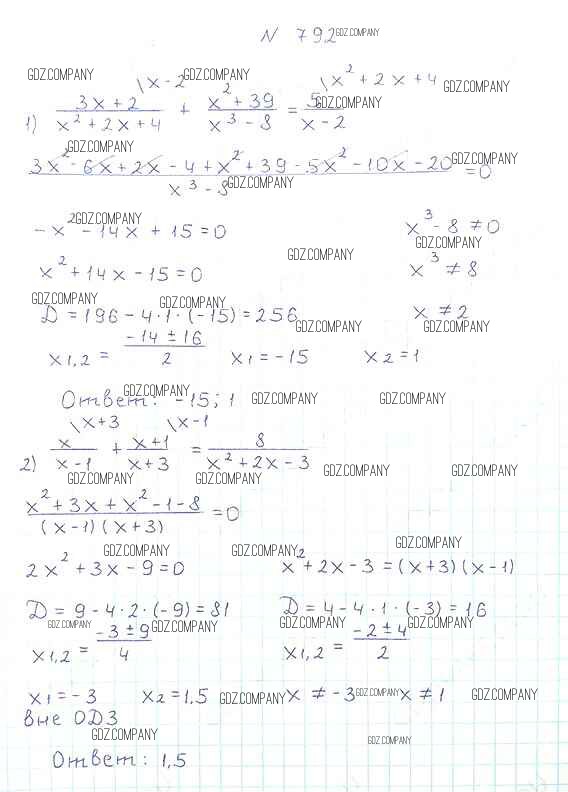 N 792 GDZ.COMPANY
GDZ.COMPANY \x-2 GDZ.COMPANY \x²+2x+4 GDZ.COMPANY
1) (3x+2)/(x²+2x+4) + (x²+39)/(x³-8) = 5/(x-2) GDZ.COMPANY
GDZ.COMPANY
(3x²-6x+2x-4+x²+39-5x²-10x-20)/(x³-8) = 0 GDZ.COMPANY GDZ.COMPANY
-x²-14x+15=0 GDZ.COMPANY x³-8≠0
GDZ.COMPANY GDZ.COMPANY
x²+14x-15=0 x³≠8
GDZ.COMPANY GDZ.COMPANY
D=196-4·1·(-15)=256 x≠2
GDZ.COMPANY GDZ.COMPANY
x1,2 = (-14±16)/2 x1=-15 x2=1
GDZ.COMPANY
Ответ: -15; 1 GDZ.COMPANY GDZ.COMPANY
\x+3 \x-1
2) x/(x-1) + (x+1)/(x+3) = 8/(x²+2x-3) GDZ.COMPANY GDZ.COMPANY
GDZ.COMPANY GDZ.COMPANY
(x²+3x+x²-1-8)/((x-1)(x+3)) = 0
GDZ.COMPANY GDZ.COMPANY GDZ.COMPANY
2x²+3x-9=0 x²+2x-3=(x+3)(x-1)
D=9-4·2·(-9)=81 D=4-4·1·(-3)=16
GDZ.COMPANY GDZ.COMPANY GDZ.COMPANY GDZ.COMPANY
x1,2 = (-3±9)/4 x1,2 = (-2±4)/2
x1=-3 x2=1,5 GDZ.COMPANY x≠-3 GDZ.COMPANY x≠1 GDZ.COMPANY
вне ОДЗ
GDZ.COMPANY GDZ.COMPANY
Ответ: 1,5